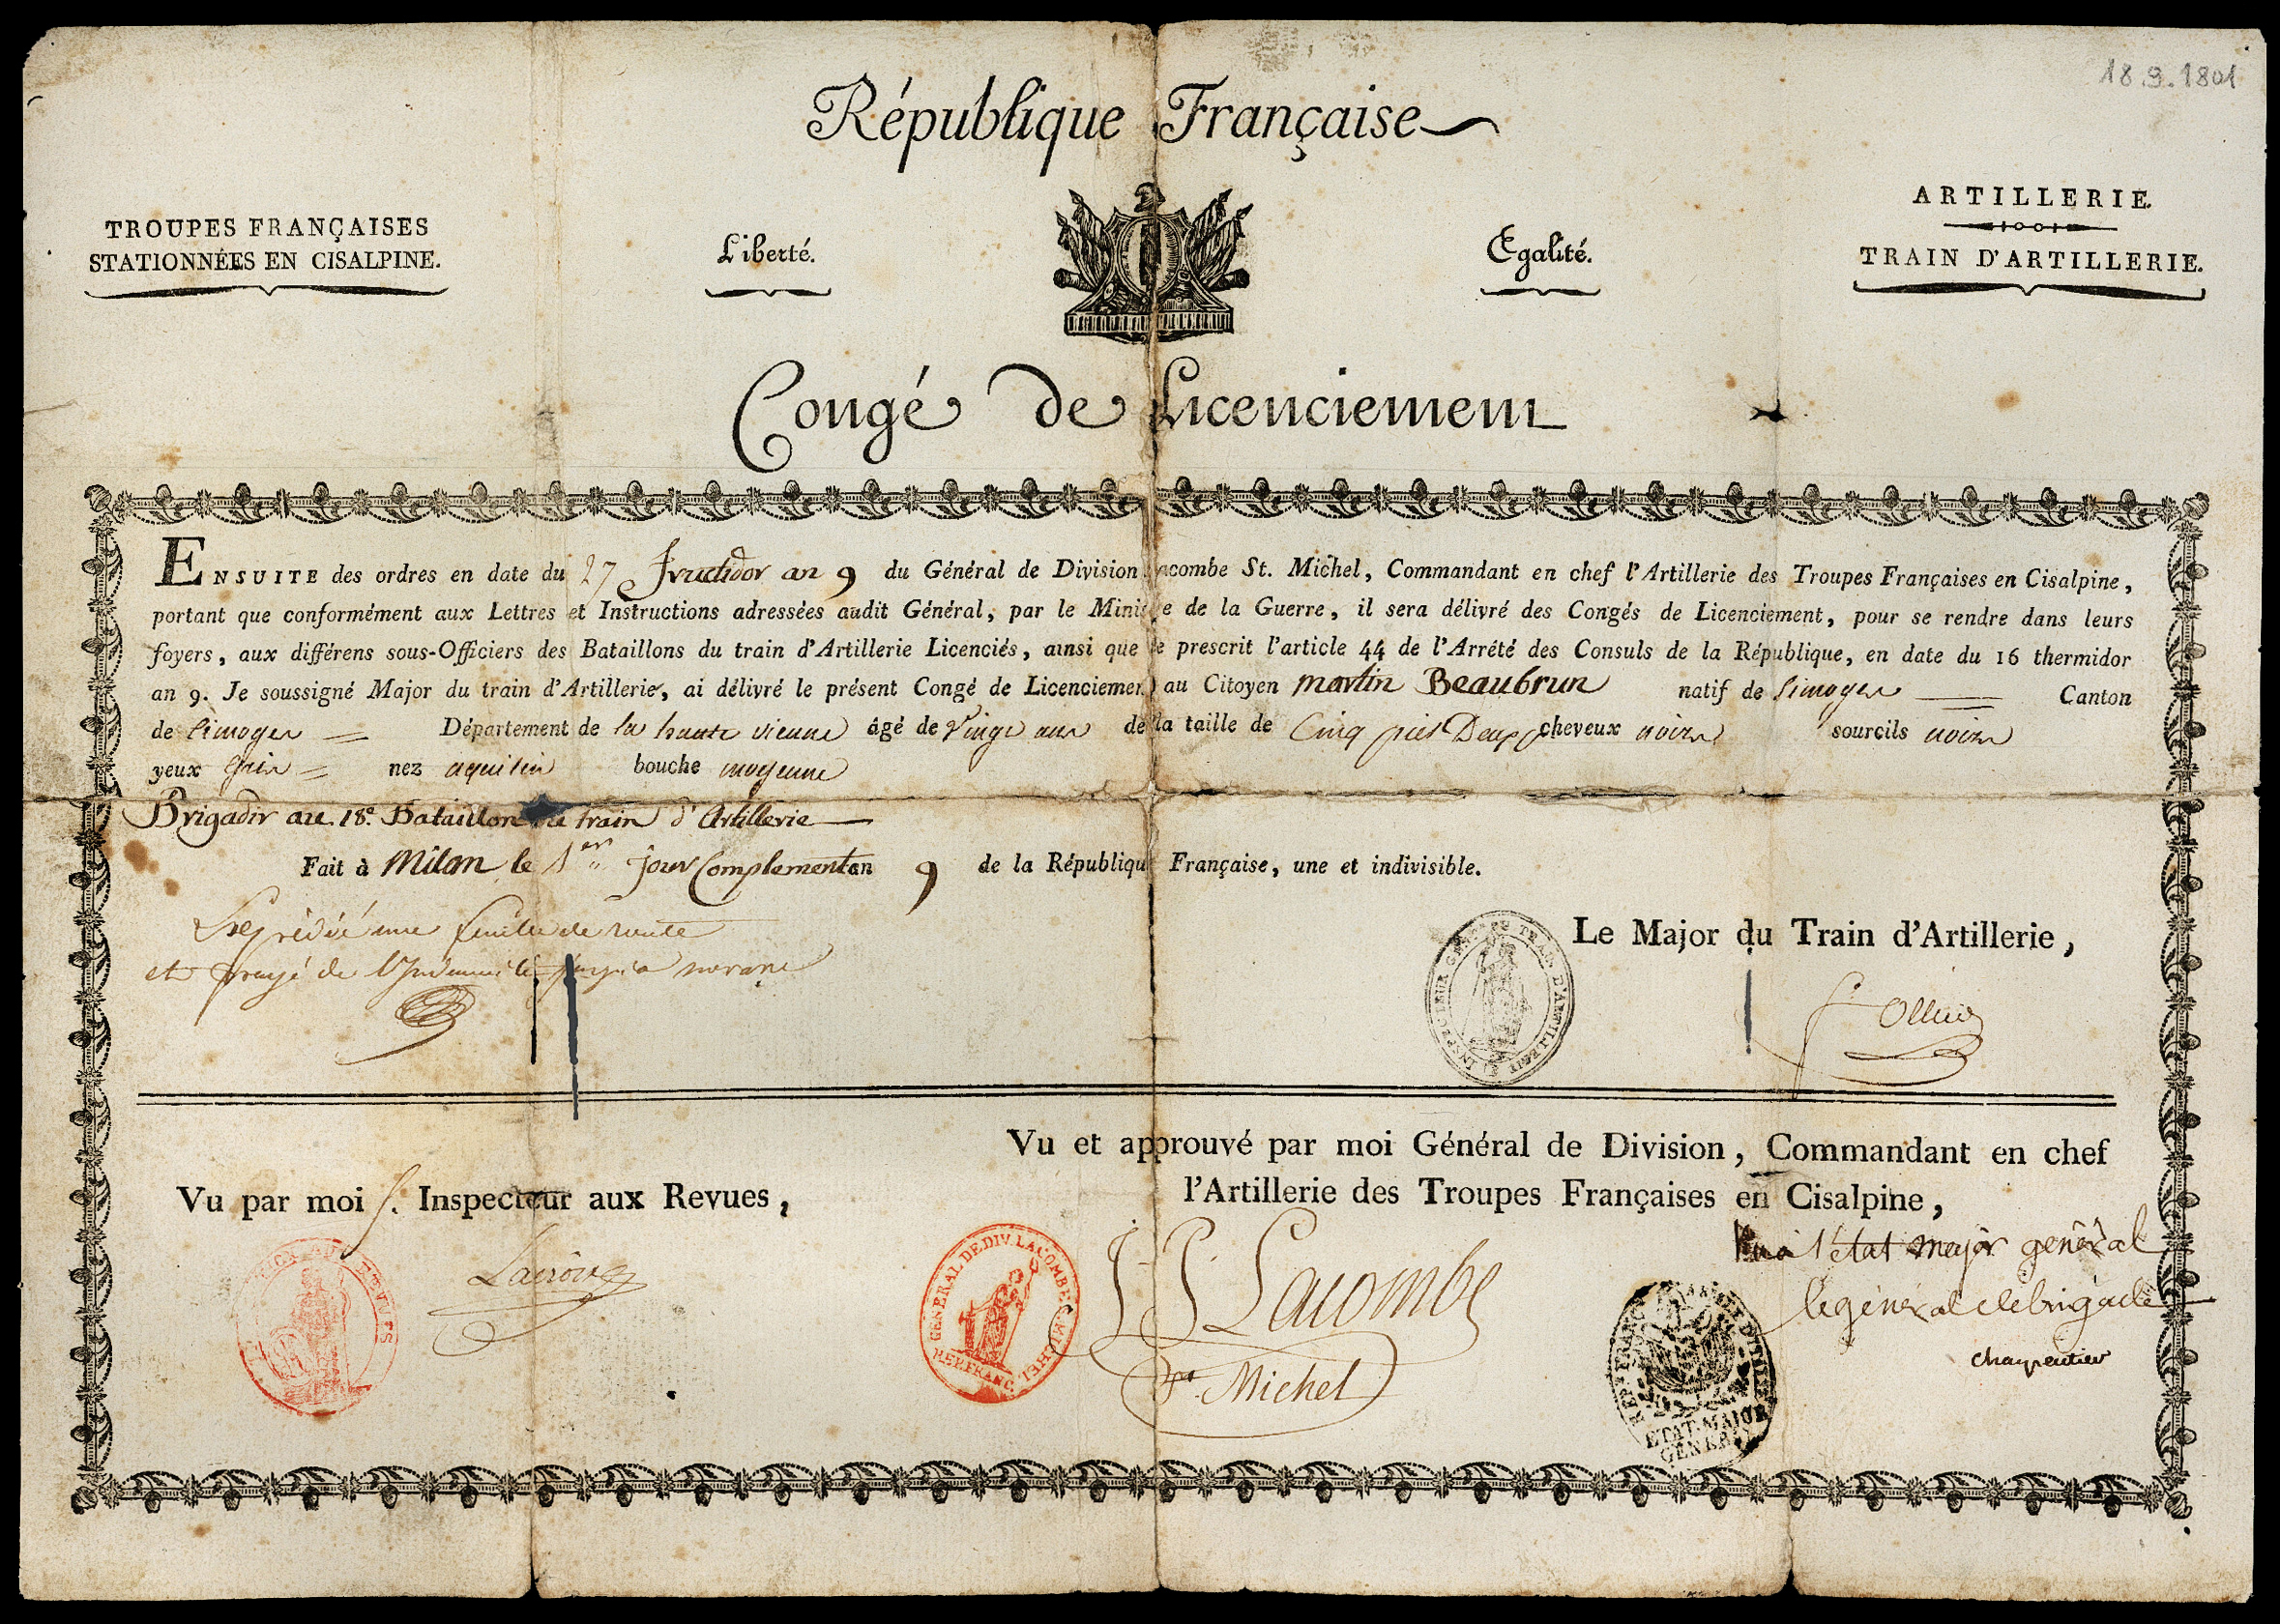 18.9.1801
République Française
TROUPES FRANÇAISES
STATIONNÉES EN CISALPINE.
Liberté.
Egalité.
ARTILLERIE.
TRAIN D'ARTILLERIE.
Congé de Licenciement
ENSUITE des ordres en date du 27 fructidor an 9 du Général de Division Lacombe St. Michel, Commandant en chef l'Artillerie des Troupes Françaises en Cisalpine,
portant que conformément aux Lettres et Instructions adressées audit Général, par le Ministre de la Guerre, il sera délivré des Congés de Licenciement, pour se rendre dans leurs
foyers, aux différens sous-Officiers des Bataillons du train d'Artillerie Licenciés, ainsi que le prescrit l'article 44 de l'Arrété des Consuls de la République, en date du 16 thermidor
an 9. Je soussigné Major du train d'Artillerie, ai délivré le présent Congé de Licenciement au Citoyen martin Beaubrun natif de limoges Canton
de limoges Département de la haute vienne âgé de vingt ans de la taille de Cinq pieds Deux p cheveux noirs sourcils noirs
yeux gris nez aquilin bouche moyenne
Brigadir au 18e. Bataillon de train d'Artillerie
Fait à Milan le 1er jour Complement an 9 de la République Française, une et indivisible.
Expédié une feuille de route
et payé de l'Indemnité
INSPECTEUR GÉN. DU TRAIN D'ARTILLERIE
Le Major du Train d'Artillerie,
Vu par moi s. Inspecteur aux Revues,
Vu et approuvé par moi Général de Division, Commandant en chef
l'Artillerie des Troupes Françaises en Cisalpine,
AUX REVUES
GÉNÉRAL DE DIV. LACOMBE S. MICHEL
REP. FRANC.
J P Lacombe
St. Michel
Vu à l'état major général
le général de brigade
Charpentier
REP. FRANC.
ETAT-MAJOR
GÉNÉRAL